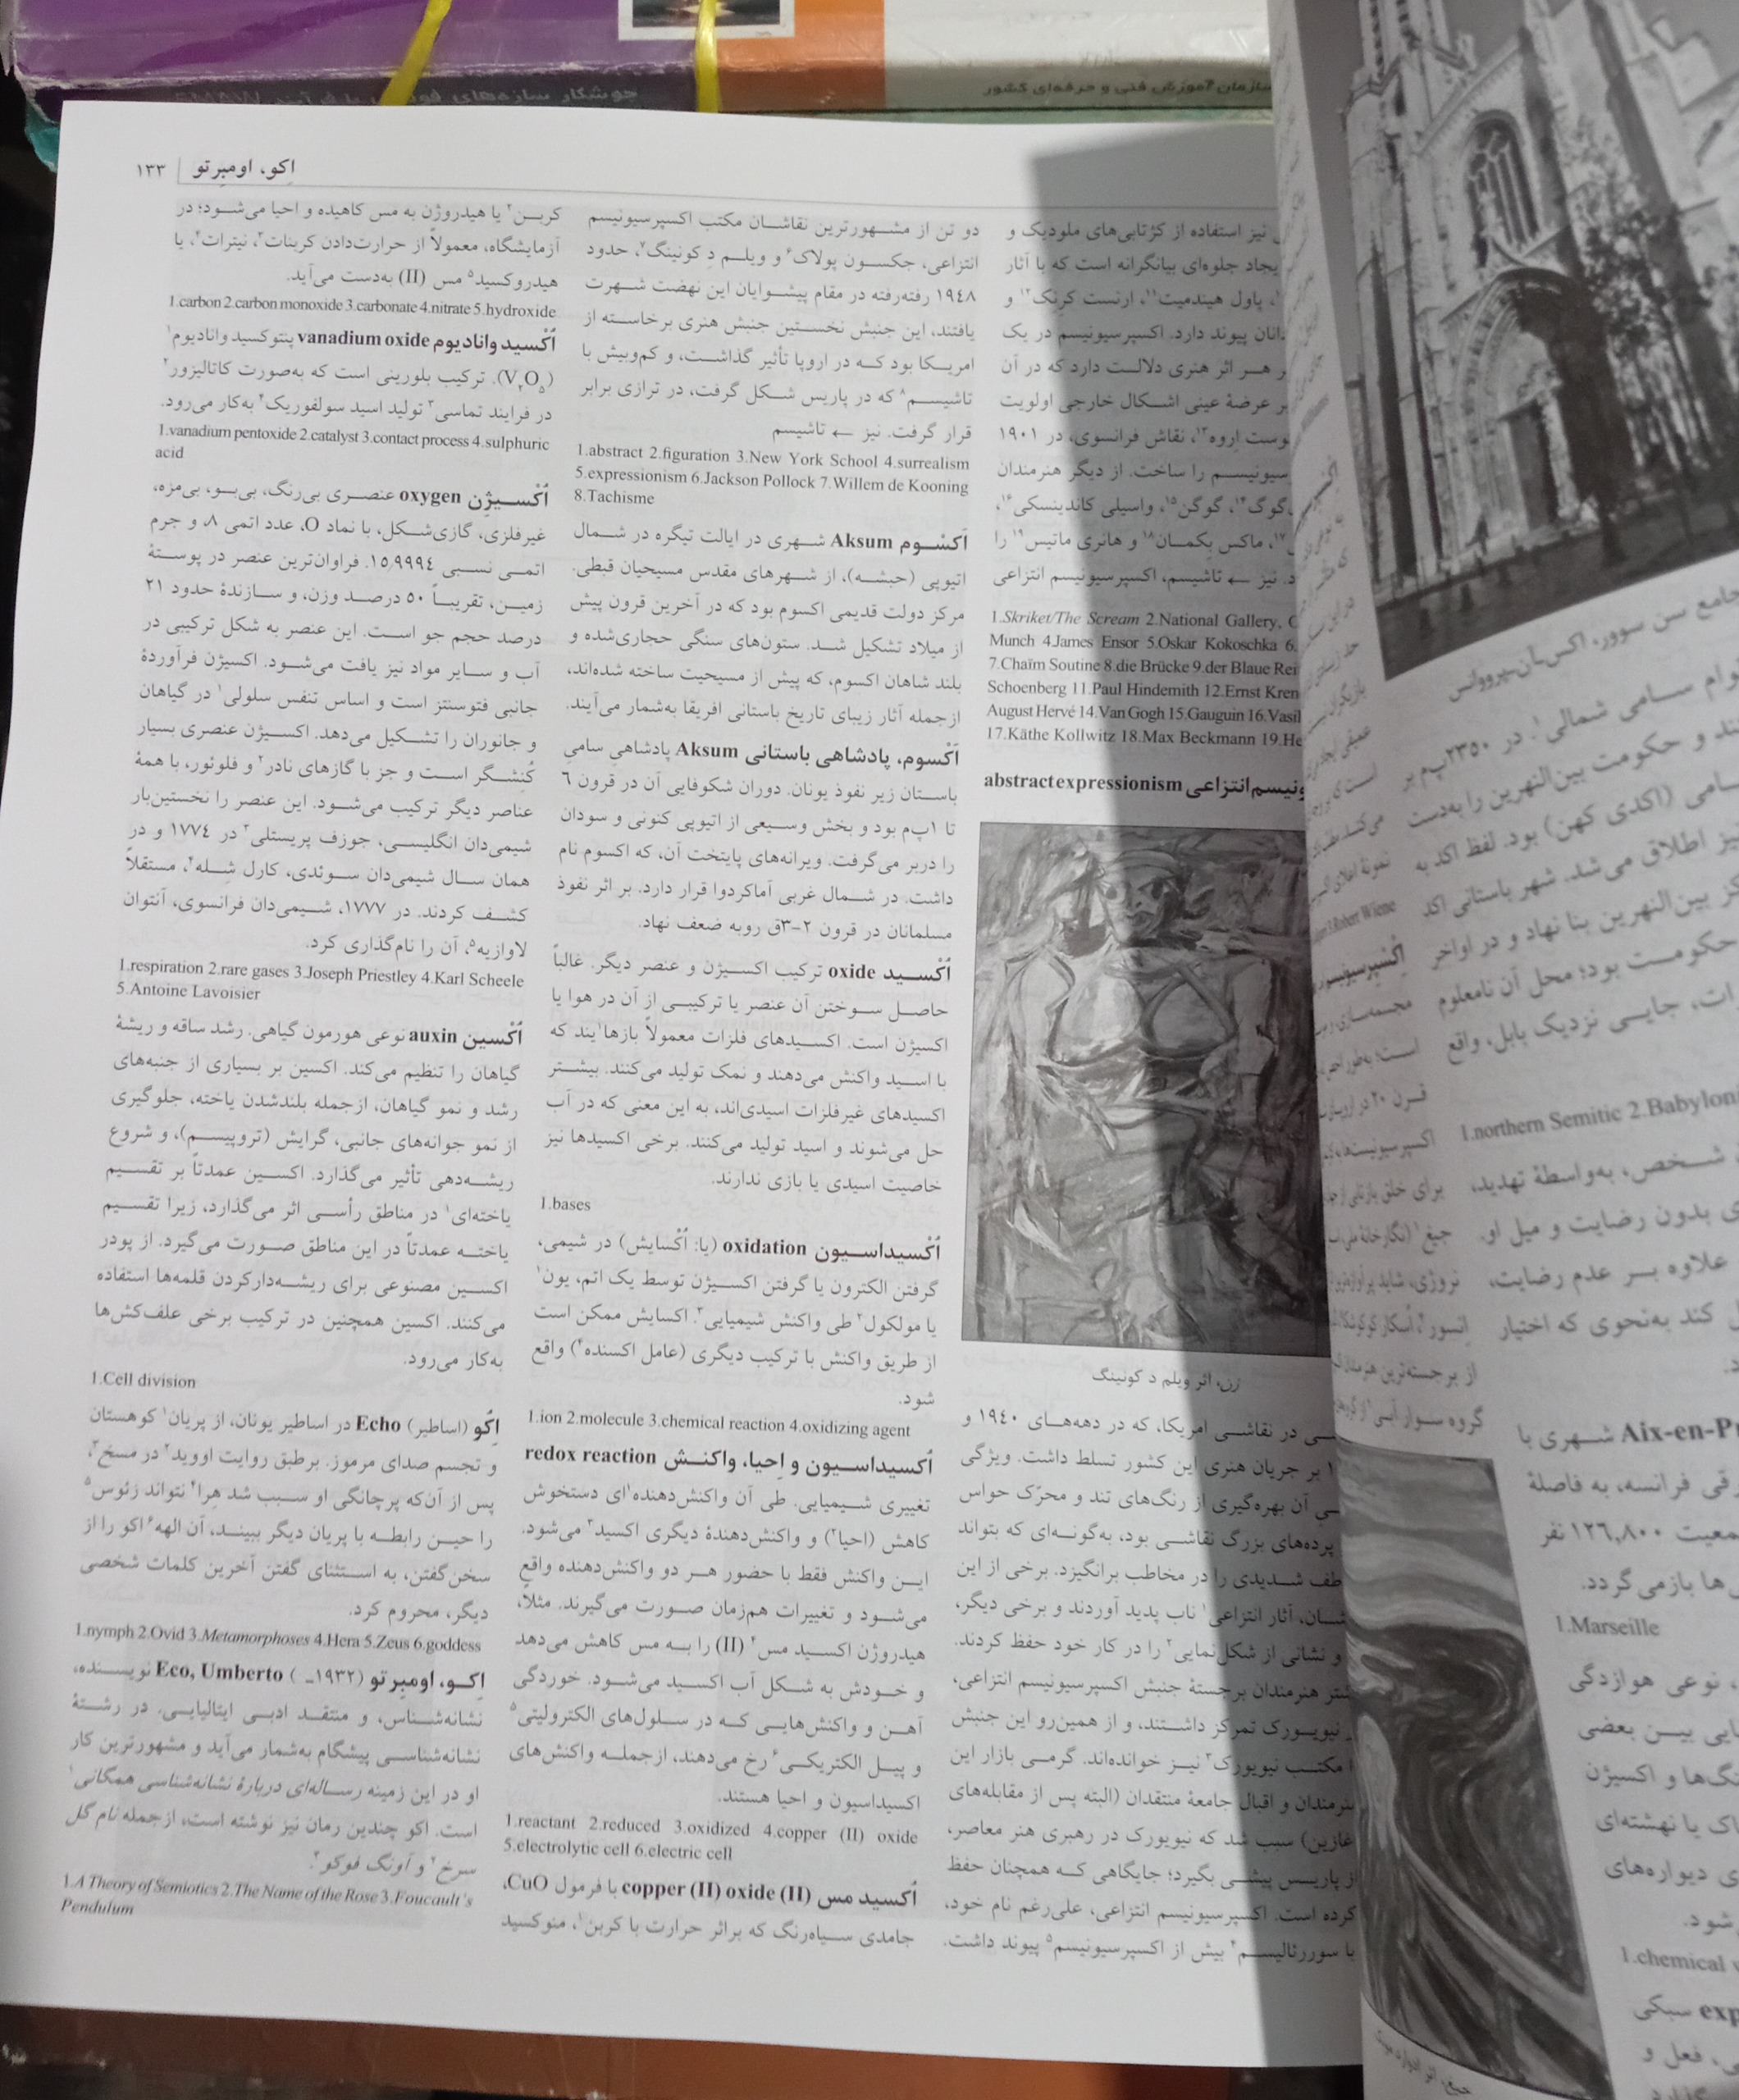 جوشکار سازه‌های
سازمان آموزش فنی و حرفه‌ای کشور
اِکو، اومبِرتو | ١٣٣
نیز استفاده از کژتابی‌های ملودیک و
یجاد جلوه‌ای بیانگرانه است که با آثار
پاول هیندمیت١١، ارنست کرنک١٢ و
دانان پیوند دارد. اکسپرسیونیسم در یک
هر اثر هنری دلالت دارد که در آن
بر عرضۀ عینی اشکال خارجی اولویت
وست اِروه١٣، نقاش فرانسوی، در ١٩٠١
سیونیسم را ساخت. از دیگر هنرمندان
گوگ١٤، گوگن١٥، واسیلی کاندینسکی١٦،
١٧، ماکس بکمان١٨ و هانری ماتیس١٩ را
د. نیز ← تاشیسم، اکسپرسیونیسم انتزاعی
1.Skriket/The Scream 2.National Gallery,
Munch 4.James Ensor 5.Oskar Kokoschka 6.
7.Chaïm Soutine 8.die Brücke 9.der Blaue Rei
Schoenberg 11.Paul Hindemith 12.Ernst Kren
August Hervé 14.Van Gogh 15.Gauguin 16.Vasil
17.Käthe Kollwitz 18.Max Beckmann 19.He
ونیسم انتزاعی abstract expressionism
زن، اثر ویلم د کونینگ
در نقاشی امریکا، که در دهه‌های ١٩٤٠ و
بر جریان هنری این کشور تسلط داشت. ویژگی
آن بهره‌گیری از رنگ‌های تند و محرّک حواس
پرده‌های بزرگ نقاشی بود، به‌گونه‌ای که بتواند
طف شدیدی را در مخاطب برانگیزد. برخی از این
شان، آثار انتزاعی١ ناب پدید آوردند و برخی دیگر،
و نشانی از شکل‌نمایی٢ را در کار خود حفظ کردند.
شتر هنرمندان برجستۀ جنبش اکسپرسیونیسم انتزاعی،
نیویورک تمرکز داشتند، و از همین‌رو این جنبش
مکتب نیویورک٣ نیز خوانده‌اند. گرمی بازار این
نرمندان و اقبال جامعۀ منتقدان (البته پس از مقابله‌های
غازین) سبب شد که نیویورک در رهبری هنر معاصر،
از پاریس پیشی بگیرد؛ جایگاهی که همچنان حفظ
کرده است. اکسپرسیونیسم انتزاعی، علی‌رغم نام خود،
با سوررئالیسم٤ بیش از اکسپرسیونیسم٥ پیوند داشت.
دو تن از مشهورترین نقاشان مکتب اکسپرسیونیسم
انتزاعی، جکسون پولاک٦ و ویلم دِ کونینگ٧، حدود
١٩٤٨ رفته‌رفته در مقام پیشوایان این نهضت شهرت
یافتند، این جنبش نخستین جنبش هنری برخاسته از
امریکا بود که در اروپا تأثیر گذاشت، و کم‌وبیش با
تاشیسم٨ که در پاریس شکل گرفت، در ترازی برابر
قرار گرفت. نیز ← تاشیسم
1.abstract 2.figuration 3.New York School 4.surrealism
5.expressionism 6.Jackson Pollock 7.Willem de Kooning
8.Tachisme
اَکْسُوم Aksum شهری در ایالت تیگره در شمال
اتیوپی (حبشه)، از شهرهای مقدس مسیحیان قبطی.
مرکز دولت قدیمی اکسوم بود که در آخرین قرون پیش
از میلاد تشکیل شد. ستون‌های سنگی حجاری‌شده و
بلند شاهان اکسوم، که پیش از مسیحیت ساخته شده‌اند،
ازجمله آثار زیبای تاریخ باستانی افریقا به‌شمار می‌آیند.
اَکْسوم، پادشاهی باستانی Aksum پادشاهیِ سامیِ
باستان زیر نفوذ یونان. دوران شکوفایی آن در قرون ٦
تا ١پ‌م بود و بخش وسیعی از اتیوپی کنونی و سودان
را دربر می‌گرفت. ویرانه‌های پایتخت آن، که اکسوم نام
داشت. در شمال غربی آماکردوا قرار دارد. بر اثر نفوذ
مسلمانان در قرون ٢-٣ق روبه ضعف نهاد.
اُکْسید oxide ترکیب اکسیژن و عنصر دیگر. غالباً
حاصل سوختن آن عنصر یا ترکیبی از آن در هوا یا
اکسیژن است. اکسیدهای فلزات معمولاً بازها١یند که
با اسید واکنش می‌دهند و نمک تولید می‌کنند. بیشتر
اکسیدهای غیرفلزات اسیدی‌اند، به این معنی که در آب
حل می‌شوند و اسید تولید می‌کنند. برخی اکسیدها نیز
خاصیت اسیدی یا بازی ندارند.
1.bases
اُکْسیداسیون oxidation (یا: اُکْسایش) در شیمی،
گرفتن الکترون یا گرفتن اکسیژن توسط یک اتم، یون١
یا مولکول٢ طی واکنش شیمیایی٣. اکسایش ممکن است
از طریق واکنش با ترکیب دیگری (عامل اکسنده٤) واقع
شود.
1.ion 2.molecule 3.chemical reaction 4.oxidizing agent
اُکسیداسیون و اِحیا، واکنش redox reaction
تغییری شیمیایی. طی آن واکنش‌دهنده١ای دستخوش
کاهش (احیا٢) و واکنش‌دهندۀ دیگری اکسید٣ می‌شود.
این واکنش فقط با حضور هر دو واکنش‌دهنده واقع
می‌شود و تغییرات هم‌زمان صورت می‌گیرند. مثلاً،
هیدروژن اکسید مس٤ (II) را به مس کاهش می‌دهد
و خودش به شکل آب اکسید می‌شود. خوردگی
آهن و واکنش‌هایی که در سلول‌های الکترولیتی٥
و پیل الکتریکی٦ رخ می‌دهند، ازجمله واکنش‌های
اکسیداسیون و احیا هستند.
1.reactant 2.reduced 3.oxidized 4.copper (II) oxide
5.electrolytic cell 6.electric cell
اُکسید مس (II) copper (II) oxide با فرمول CuO،
جامدی سیاه‌رنگ که براثر حرارت با کربن١، منوکسید
کربن٢ یا هیدروژن به مس کاهیده و احیا می‌شود؛ در
آزمایشگاه، معمولاً از حرارت‌دادن کربنات٣، نیترات٤، یا
هیدروکسید٥ مس (II) به‌دست می‌آید.
1.carbon 2.carbon monoxide 3.carbonate 4.nitrate 5.hydroxide
اُکْسید وانادیوم vanadium oxide پنتوکسید وانادیوم١
(V٢O٥). ترکیب بلورینی است که به‌صورت کاتالیزور٢
در فرایند تماسی٣ تولید اسید سولفوریک٤ به‌کار می‌رود.
1.vanadium pentoxide 2.catalyst 3.contact process 4.sulphuric
acid
اُکْسیژِن oxygen عنصری بی‌رنگ، بی‌بو، بی‌مزه،
غیرفلزی، گازی‌شکل، با نماد O، عدد اتمی ٨، و جرم
اتمی نسبی ١٥٫٩٩٩٤. فراوان‌ترین عنصر در پوستۀ
زمین، تقریباً ٥٠ درصد وزن، و سازندۀ حدود ٢١
درصد حجم جو است. این عنصر به شکل ترکیبی در
آب و سایر مواد نیز یافت می‌شود. اکسیژن فرآوردۀ
جانبی فتوسنتز است و اساس تنفس سلولی١ در گیاهان
و جانوران را تشکیل می‌دهد. اکسیژن عنصری بسیار
کُنِشگر است و جز با گازهای نادر٢ و فلوئور، با همۀ
عناصر دیگر ترکیب می‌شود. این عنصر را نخستین‌بار
شیمی‌دان انگلیسی، جوزف پریستلی٣ در ١٧٧٤ و در
همان سال شیمی‌دان سوئدی، کارل شِله٤، مستقلاً
کشف کردند. در ١٧٧٧، شیمی‌دان فرانسوی، آنتوان
لاوازیه٥، آن را نام‌گذاری کرد.
1.respiration 2.rare gases 3.Joseph Priestley 4.Karl Scheele
5.Antoine Lavoisier
اُکْسین auxin نوعی هورمون گیاهی. رشد ساقه و ریشۀ
گیاهان را تنظیم می‌کند. اکسین بر بسیاری از جنبه‌های
رشد و نمو گیاهان، ازجمله بلندشدن یاخته، جلوگیری
از نمو جوانه‌های جانبی، گرایش (تروپیسم)، و شروع
ریشه‌دهی تأثیر می‌گذارد. اکسین عمدتاً بر تقسیم
یاخته‌ای١ در مناطق رأسی اثر می‌گذارد، زیرا تقسیم
یاخته عمدتاً در این مناطق صورت می‌گیرد. از پودر
اکسین مصنوعی برای ریشه‌دارکردن قلمه‌ها استفاده
می‌کنند. اکسین همچنین در ترکیب برخی علف‌کش‌ها
به‌کار می‌رود.
1.Cell division
اِکُو (اساطیر) Echo در اساطیر یونان، از پریان١ کوهستان
و تجسم صدای مرموز. برطبق روایت اووید٢ در مسخ٣،
پس از آن‌که پرچانگی او سبب شد هِرا٤ نتواند زئوس٥
را حین رابطه با پریان دیگر ببیند، آن الهه٦ اکو را از
سخن‌گفتن، به استثنای گفتن آخرین کلمات شخصی
دیگر، محروم کرد.
1.nymph 2.Ovid 3.Metamorphoses 4.Hera 5.Zeus 6.goddess
اِکو، اومبِرتو (١٩٣٢ـ ) Eco, Umberto نویسنده،
نشانه‌شناس، و منتقد ادبی ایتالیایی. در رشتۀ
نشانه‌شناسی پیشگام به‌شمار می‌آید و مشهورترین کار
او در این زمینه رساله‌ای دربارۀ نشانه‌شناسی همگانی١
است. اکو چندین رمان نیز نوشته است، ازجمله نام گل
سرخ٢ و آونگ فوکو٣.
1.A Theory of Semiotics 2.The Name of the Rose 3.Foucault's
Pendulum
جامع سن سوور، اکس-آن-پرووانس
وام سامی شمالی١. در ٢٣٥٠پ‌م بر
ند و حکومت بین‌النهرین را به‌دست
سامی (اکدی کهن) بود. لفظ اکد به
یز اطلاق می‌شد. شهر باستانی اکد
کز بین‌النهرین بنا نهاد و در اواخر
حکومت بود؛ محل آن نامعلوم
ات، جایی نزدیک بابل، واقع
1.northern Semitic 2.Babylon
شخص، به‌واسطۀ تهدید،
ی بدون رضایت و میل او.
علاوه بر عدم رضایت،
کند به‌نحوی که اختیار
Aix-en-Pr شهری با
رقی فرانسه، به فاصلۀ
معیت ١٢٦,٨٠٠ نفر
ها بازمی‌گردد.
1.Marseille
، نوعی هوازدگی
یایی بین بعضی
نگ‌ها و اکسیژن
اک یا نهشته‌ای
ی دیواره‌های
شود.
1.chemical
exp سبکی
ی، فعل و